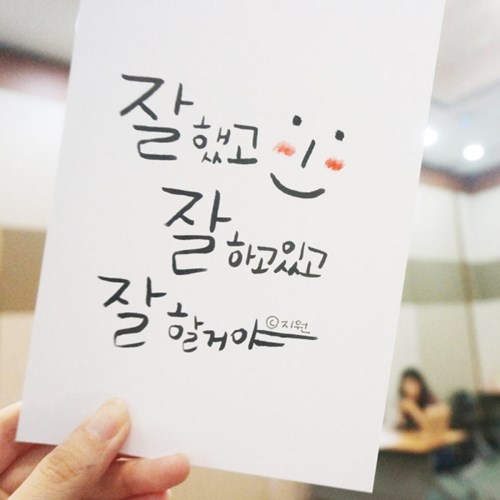 잘했고
잘하고있고
잘할거야
©지원